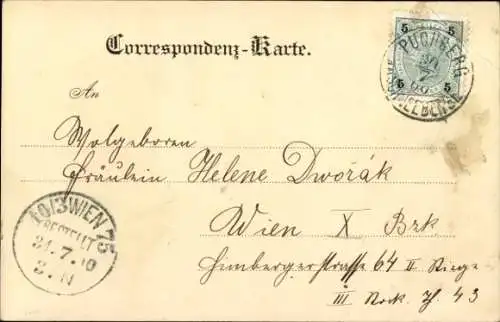 5 5
5 5
PUCHBERG
30
7
Correspondenz-Karte.
An
Wolgeboren
Fräulein Helene Dwořák
Wien X Bzk
Himbergerstrasse 64 II Stiege
III Stock T. 43
10/3 WIEN 75
BESTELLT
31.7.10